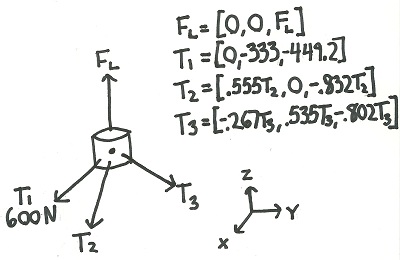 F_L=[0,0,F_L]
T_1=[0,-333,-449.2]
T_2=[.555T_2,0,-.832T_2]
T_3=[-.267T_3,.535T_3,-.802T_3]
F_L
T_1
600N
T_2
T_3
Z
Y
X